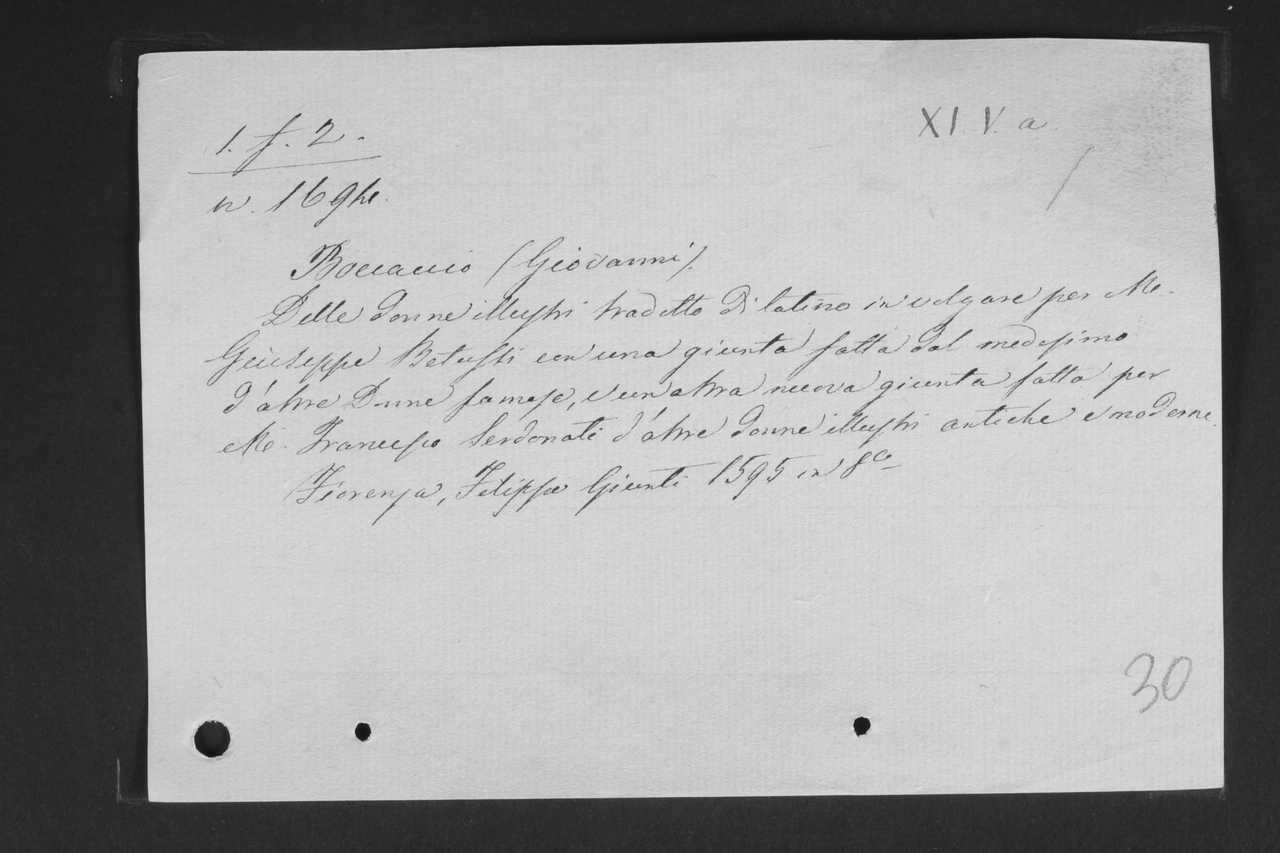 1. f. 2.
XI V. a
n. 169
Boccaccio (Giovanni).
Delle donne illustri tradotto di latino in volgare per M.
Giuseppe Betussi con una giunta fatta dal medesimo
d'altre Donne famose, e un altra nuova giunta fatta per
M. Francesco Serdonati d'altre donne illustri antiche e moderne.
Fiorenza, Filippo Giunti 1595 in 8o
30